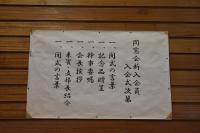 同窓会新入会員
入会式次第
一、開式の言葉
一、記念品贈呈
一、幹事委嘱
一、会長挨拶
一、来賓・支部長紹介
一、閉式の言葉